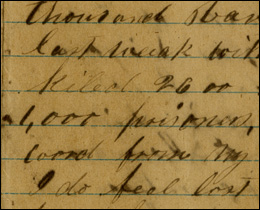 thousand
last weak wit
kiled 2600
1,000 prisoners,
word from my
I do feel lost